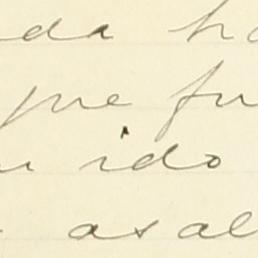 da ha
que fu
ido
asal